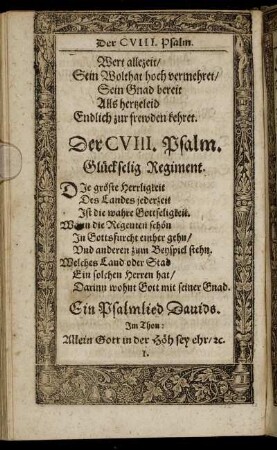 Der CVIII. Psalm.
Wert allezeit/
Sein Wolthat hoch vermehret/
Sein Gnad bereit
Alls hertzeleid
Endlich zur frewden kehret.
Der CVIII. Psalm.
Glückselig Regiment.
DJe gröste Herrligkeit
Des Landes jederzeit
Ist die wahre Gottseligkeit.
Wenn die Regenten schön
In Gottsfurcht einher gehn/
Vnd anderen zum Beyspiel stehn.
Welches Land oder Stad
Ein solchen Herren hat/
Darinn wohnt Gott mit seiner Gnad.
Ein Psalmlied Dauids.
Im Thon:
Allein Gott in der Höh sey ehr/ꝛc.
1.